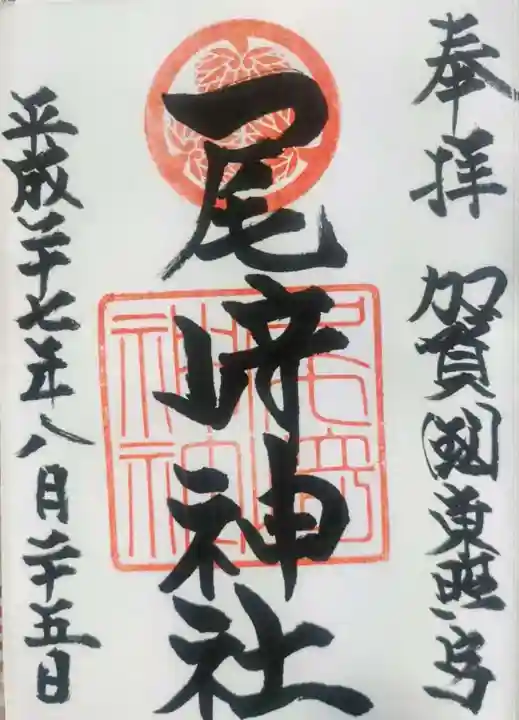 奉拝 加賀國東照宮
尾崎神社
平成二十七年八月二十五日
尾﨑
神社